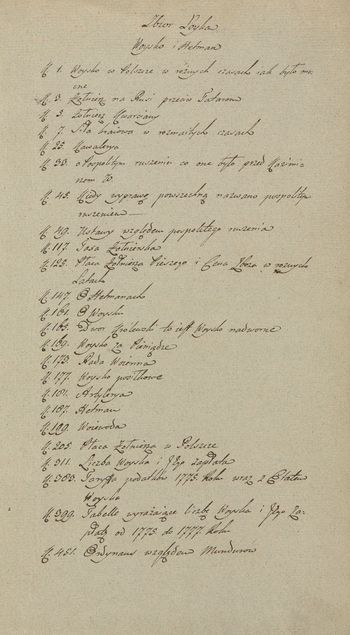 Zbior Łoyka
Woysko i Hetman
N. 1. Woysko w Polszcze w różnych czasach iak było mo-
cne
N. 3. Żołnierz na Rusi przeciw Tatarom
N. 5. Żołnierz Kwarciany
N. 7. Siła kraiowa w rozmaitych czasach
N. 25. Kawalerya
N. 33. o Pospolitym ruszeniu co one było przed Kazimie-
rzem
N. 45. Kiedy wyprawę powszechną nazwano pospolitym
ruszeniem —
N. 49. Ustawy względem pospolitego ruszenia
N. 117. Żołnierska
N. 123. Płaca Żołnierza Pieszego i Cena Zboża w roznych
Latach
N. 147. O Hetmanach
N. 161. O Woysku
N. 165. Dwor Krolewski to iest Woysko nadworne
N. 169. Woysko za Pieniądze
N. 173. Rada Woienna
N. 177. Woysko posiłkowe
N. 181. Artylerya
N. 187. Hetman
N. 199. Woiewoda
N. 205. Płaca Żołnierza w Polszcze
N. 311. Liczba Woyska i Jego zapłata
N. 383. Taryffa podatków 1775 Roku wraz z Etatem
Woyska
N. 399. Tabelle wyrażaiące liczbę Woyska i Jego Za-
płatę od 1775 do 1777 Roku
N. 451. Ordynans względem Mundurów